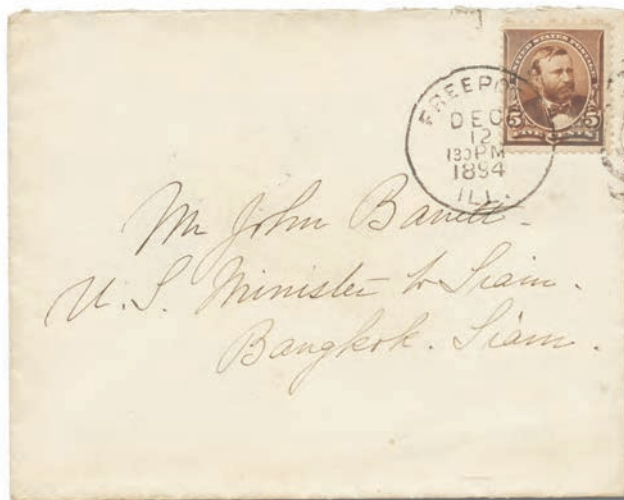 UNITED STATES POSTAGE
5 5
FREEPO
DEC
12
130PM
1894
ILL.
Mr John Barrett.
U. S. Minister to Siam.
Bangkok. Siam.